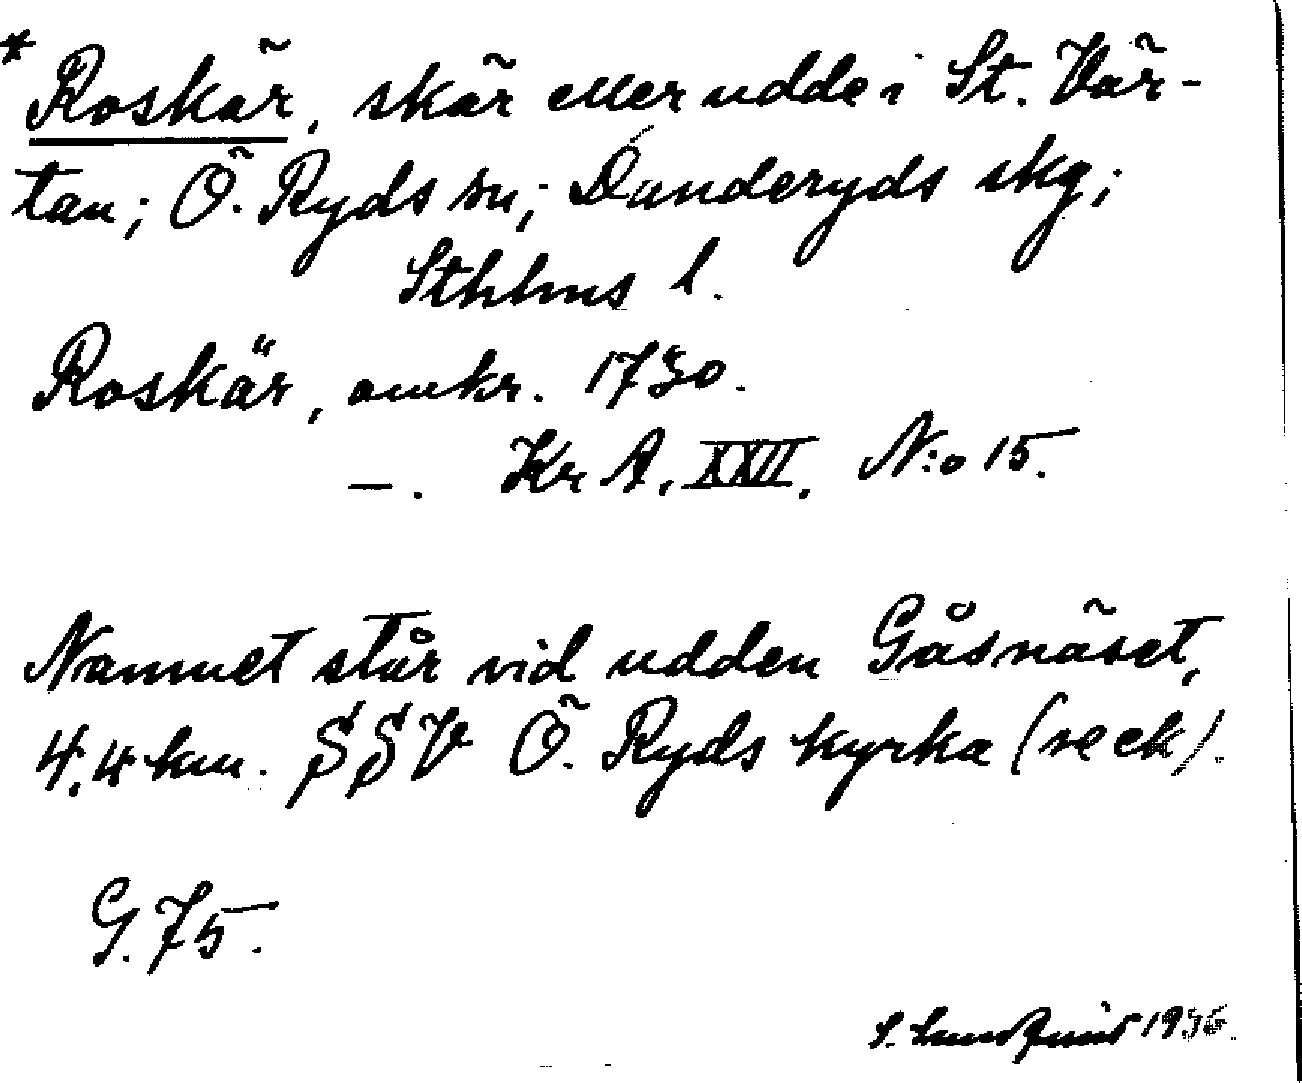 * Roskär, skär eller udde i St. Vär-
tan; Ö. Ryds sn; Danderyds skg;
Sthlms l.
Roskär, omkr. 1730.
—. Kr A, XXVII. N:o 15.
Namnet står vid udden Gåsnäset,
4,4 km. SSV Ö. Ryds kyrka (seck).
G. 75.
S. Lundquist